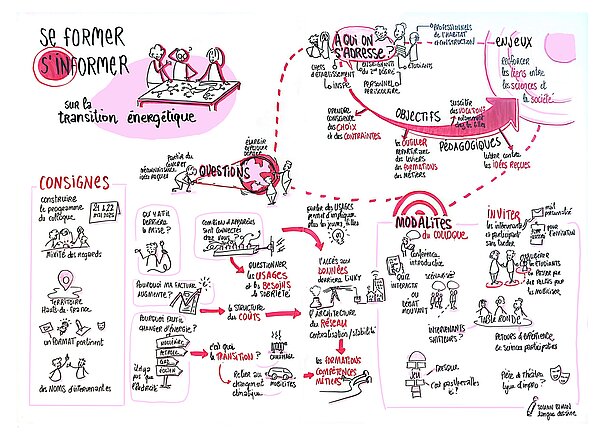 se former
s'informer
sur la
transition énergétique
à qui on
s'adresse?
chefs
d'établissement
enseignants
du 2nd degré
étudiants
professionnels
de l'habitat
construction
INSPE
personnel
périscolaire
enjeux
renforcer
les liens entre
les sciences et
la société
prendre
conscience
des choix
et des contraintes
objectifs
pédagogiques
susciter
des vocations
notamment
chez les filles
les outiller
formations
des métiers
lutter contre
les idées reçues
partir du
concret
questions
énergie
consignes
construire
le programme
du colloque
21 & 22
mai 2025
mixité des regards
territoire
Hauts-de-France
un format pertinent
des noms d'intervenantes
qu'y a-t-il
derrière
la mise?
combien d'appareils
sont connectés
chez vous?
questionner
les usages
et les besoins
sobriété
pourquoi ma facture
augmente?
la structure
des coûts
pourquoi
d'énergie?
nucléaire
pétrole
gaz
éolien
il n'y a
pas que
l'électricité
c'est quoi
la transition?
chauffage
relier au
changement
climatique
mobilités
partir des usages
permet d'impliquer
plus les jeunes, filles
l'accès aux
données
derrière Linky
l'architecture
du réseau
centralisation/stabilité
les formations
compétences
métiers
modalités
du colloque
conférence
introductive
quiz
interactif
ou
débat
mouvant
scénarisé
intervenants
jeu
inviter
les intervenants
à participer
sans l'ordre
mail
personnalisé
pour l'invitation
les étudiants
en passer par
des relais
les mobiliser
table ronde
retours d'expérience
en sciences participatives
pièce de théâtre
ligue d'impro?